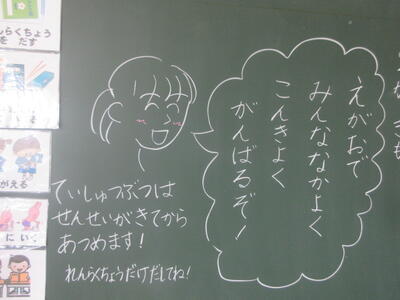 えがおで
みんななかよく
こんきよく
がんばるぞ!
ていしゅつぶつは
せんせいがきてから
あつめます!
れんらくちょうだけだしてね!
んらくちょう
を だす
がえる
にいく